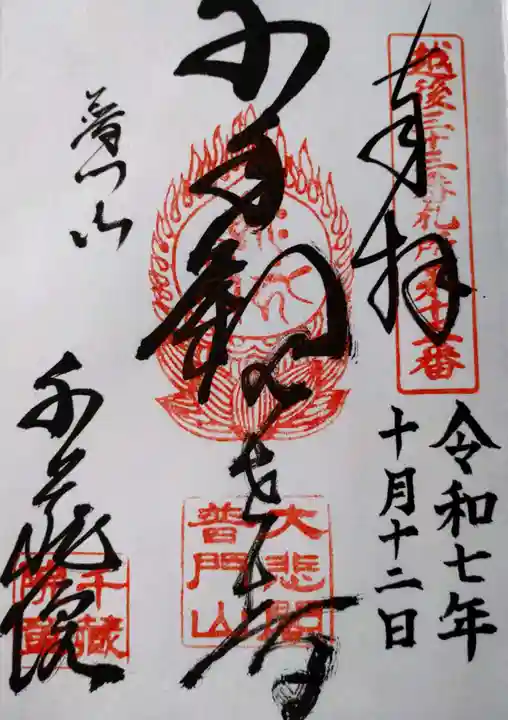 奉拝
越後三十三番札所第十二番
令和七年
十月十二日
千手観世音
普門山
大悲閣
普門山
千蔵院
千蔵
院